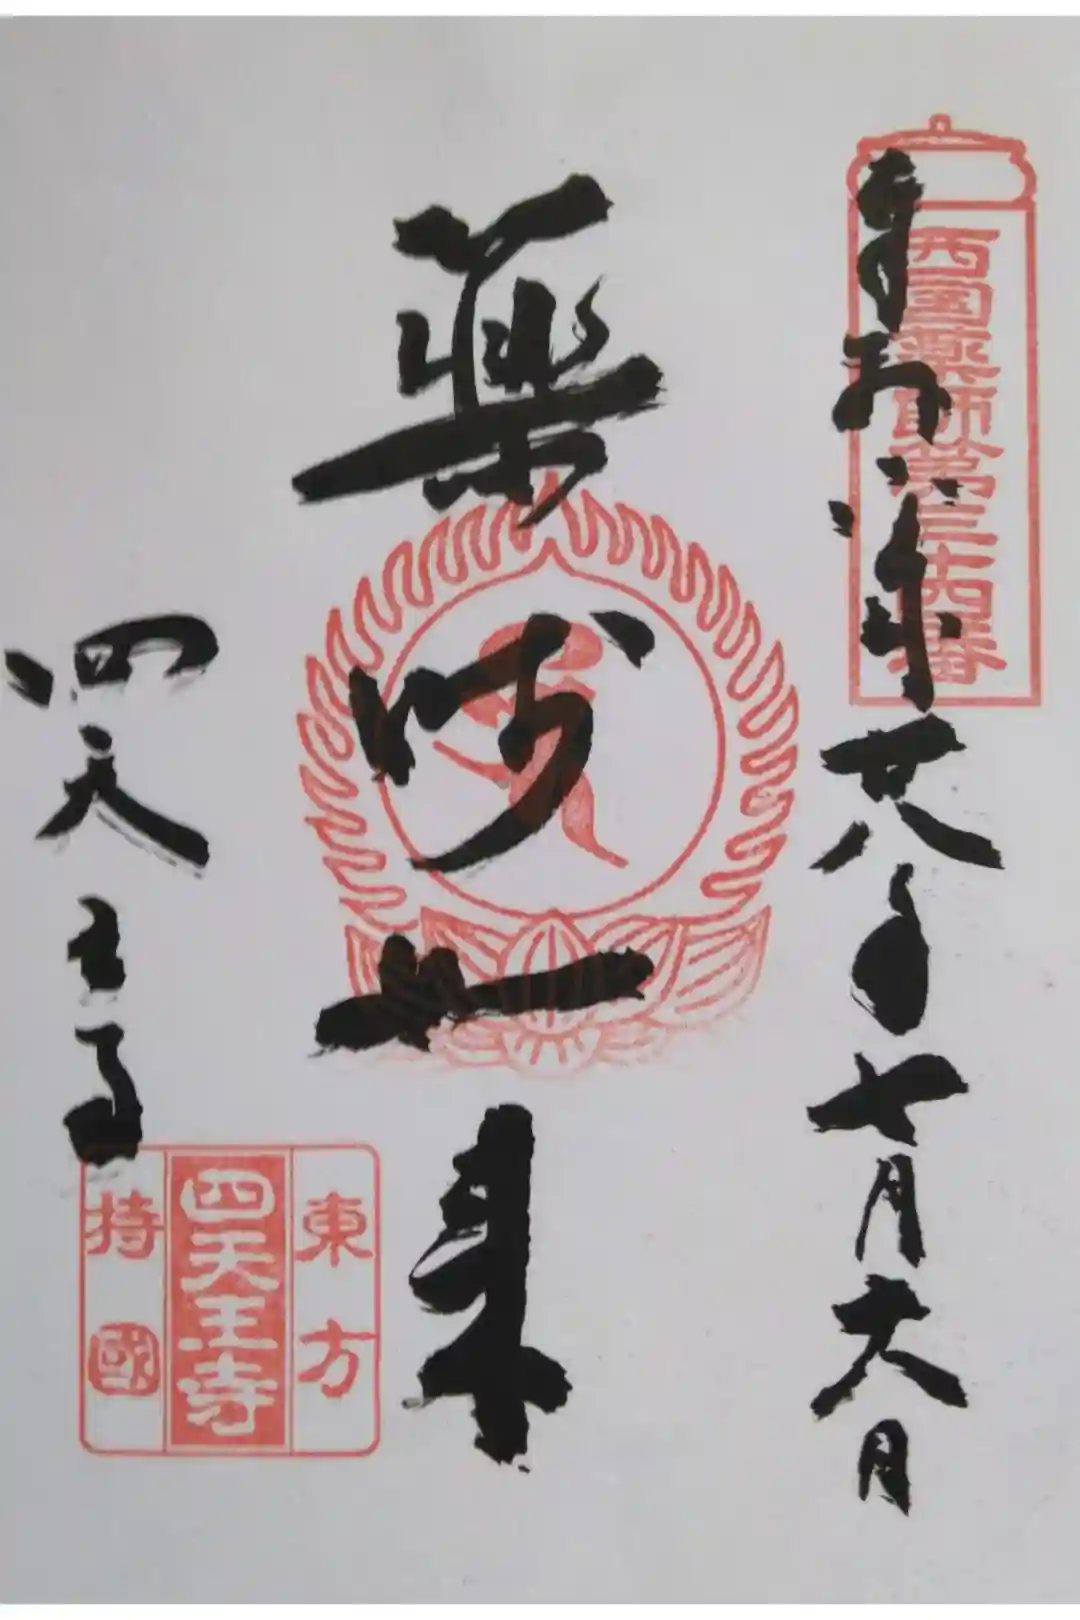 西国薬師第三十四番
奉拝 平成廿八年七月 日
薬師如来
四天王寺
東方
四天王寺
持國